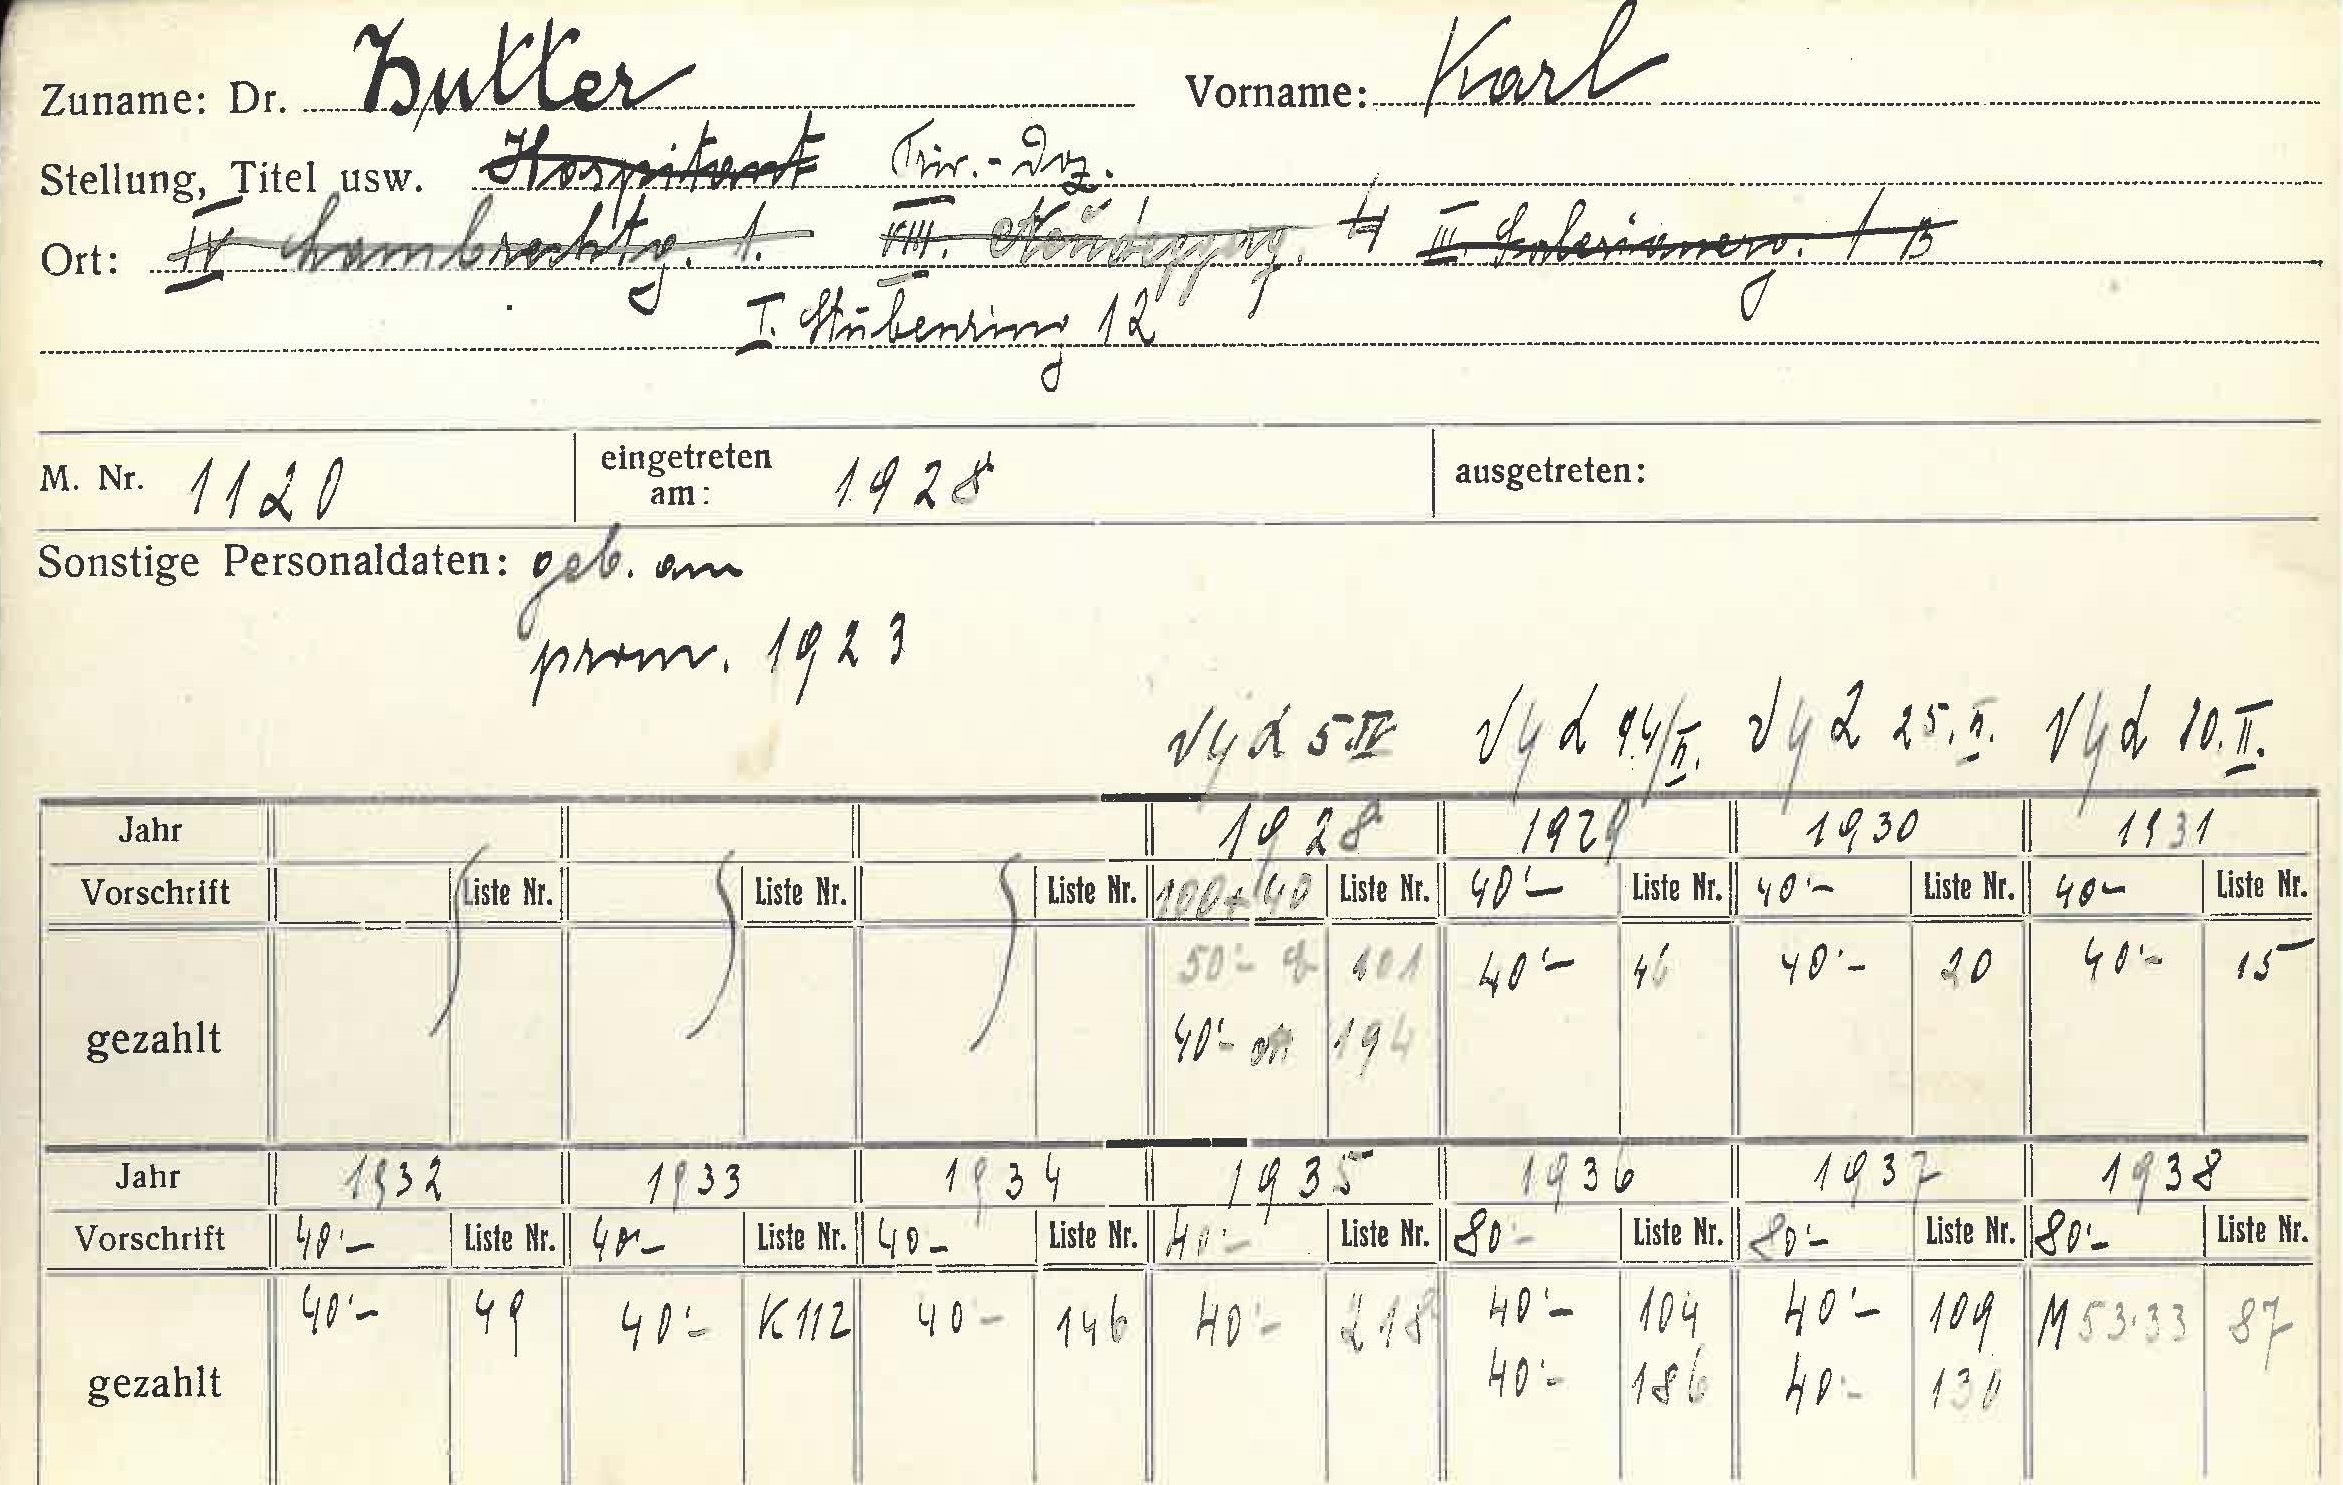 Zuname: Dr. Hutter Vorname: Karl
Stellung, Titel usw. Hospitant Priv.-Doz.
Ort: IV Lambrechtg. 1. VIII. Neudeggerg. 4 III. 1 B
I. Stubenring 12
M. Nr. 1120 eingetreten am: 1928 ausgetreten:
Sonstige Personaldaten: geb. am
prom. 1923
5 IV 25. II. 10. II.
Jahr 1928 1929 1930 1931
Vorschrift Liste Nr. Liste Nr. Liste Nr. 100+40 Liste Nr. 40'- Liste Nr. 40'- Liste Nr. 40- Liste Nr.
50'- 101 40'- 46 40'- 20 40'- 15
gezahlt 40'- 194
Jahr 1932 1933 1934 1935 1936 1937 1938
Vorschrift 40'- Liste Nr. 40'- Liste Nr. 40- Liste Nr. 40'- Liste Nr. 80'- Liste Nr. 80'- Liste Nr. 80'- Liste Nr.
40'- 49 40'- K112 40'- 146 40'- 218 40'- 104 40'- 109 M 53.33 87
gezahlt 40'- 186 40'- 130